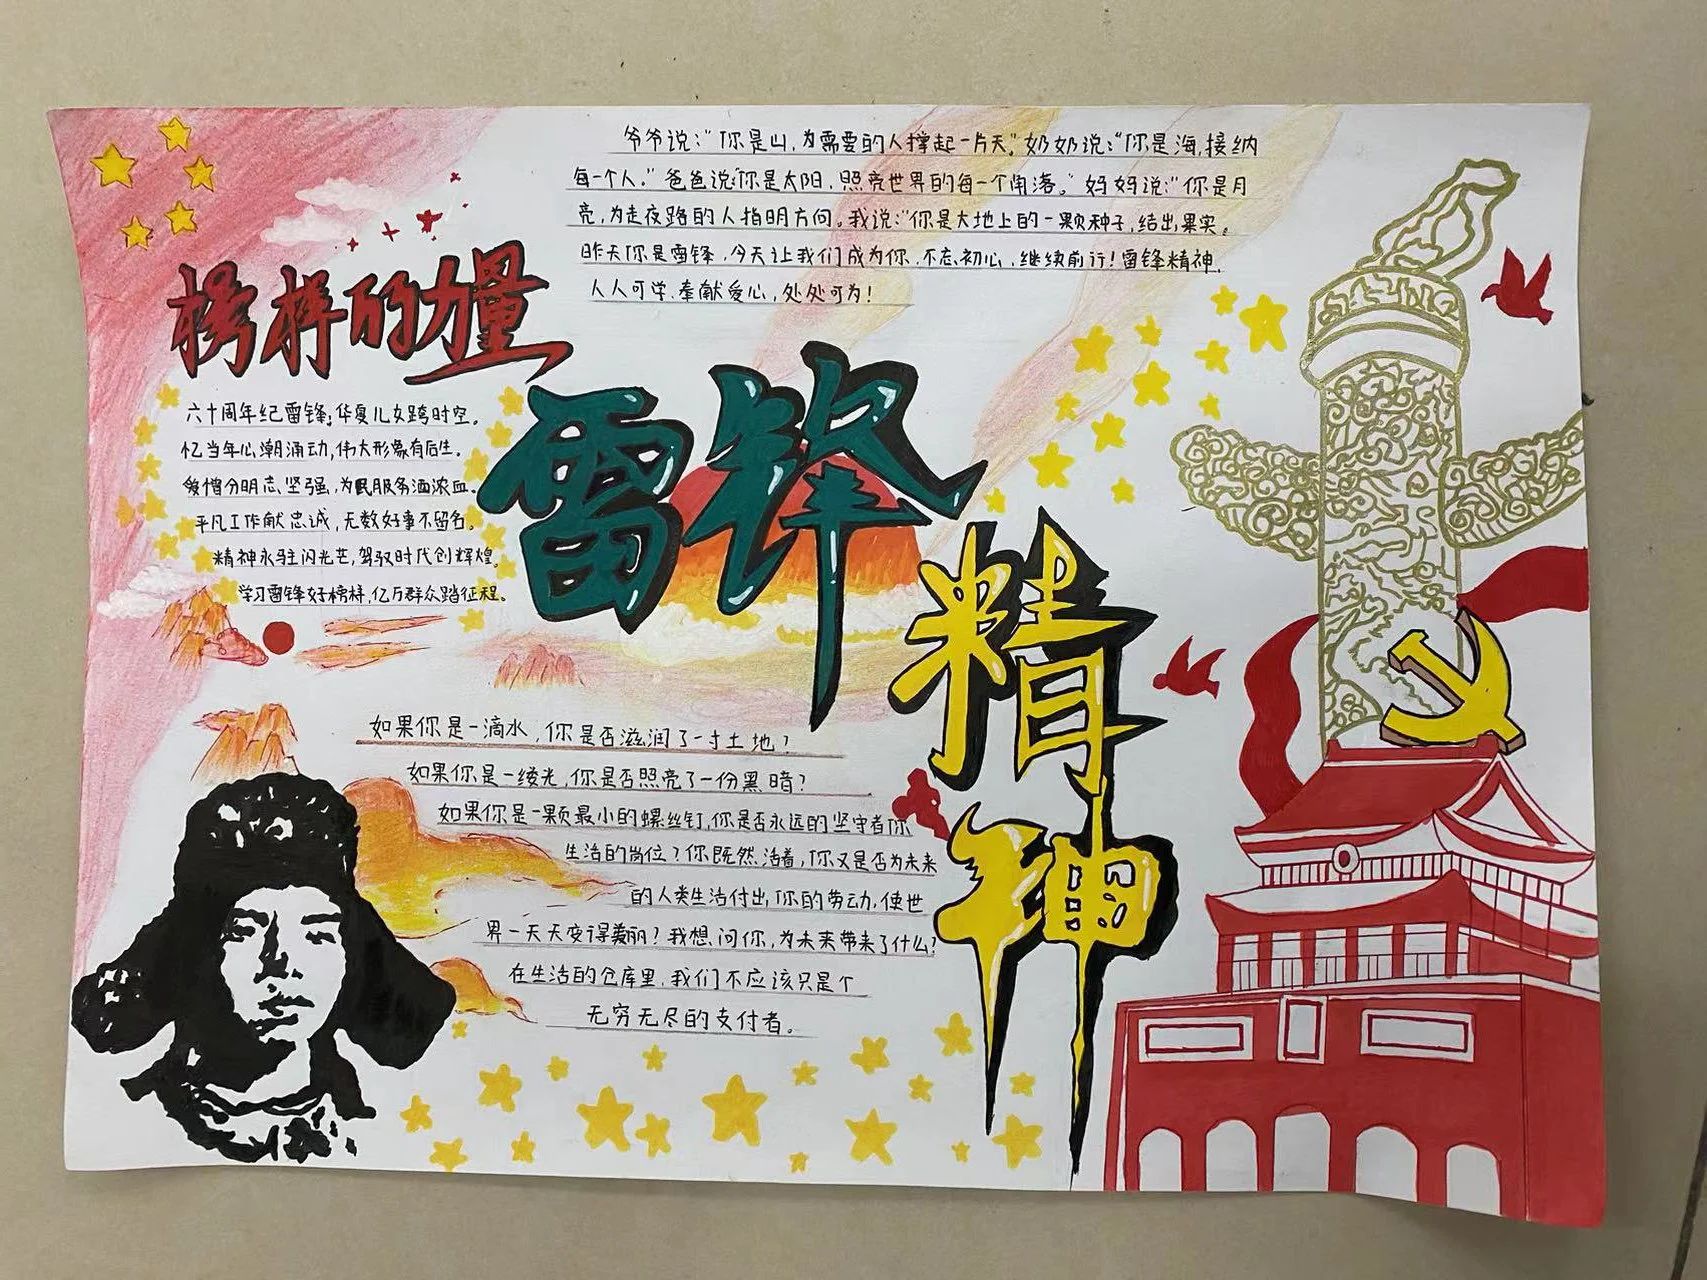 爷爷说:"你是山,为需要的人撑起一片天。"奶奶说:"你是海,接纳
每一个人。"爸爸说:"你是太阳,照亮世界的每一个角落。"妈妈说:"你是月
亮,为走夜路的人指明方向。我说:"你是大地上的一颗种子,结出果实。
昨天你是雷锋,今天让我们成为你,不忘初心,继续前行!雷锋精神,
人人可学、奉献爱心,处处可为!
榜样的力量
六十周年纪雷锋;华夏儿女跨时空。
忆当年心潮涌动,伟大形象有后生。
爱憎分明志坚强,为民服务洒浓血。
平凡工作献忠诚,无数好事不留名。
精神永驻闪光芒,驾驭时代创辉煌。
学习雷锋好榜样,亿万群众踏征程。
雷锋
精神
如果你是一滴水,你是否滋润了一寸土地?
如果你是一缕光,你是否照亮了一份黑暗?
如果你是一颗最小的螺丝钉,你是否永远的坚守着你
生活的岗位?你既然活着,你又是否为未来
的人类生活付出,你的劳动,使世
界一天天变得美丽?我想问你,为未来带来了什么?
在生活的仓库里,我们不应该只是个
无穷无尽的支付者。